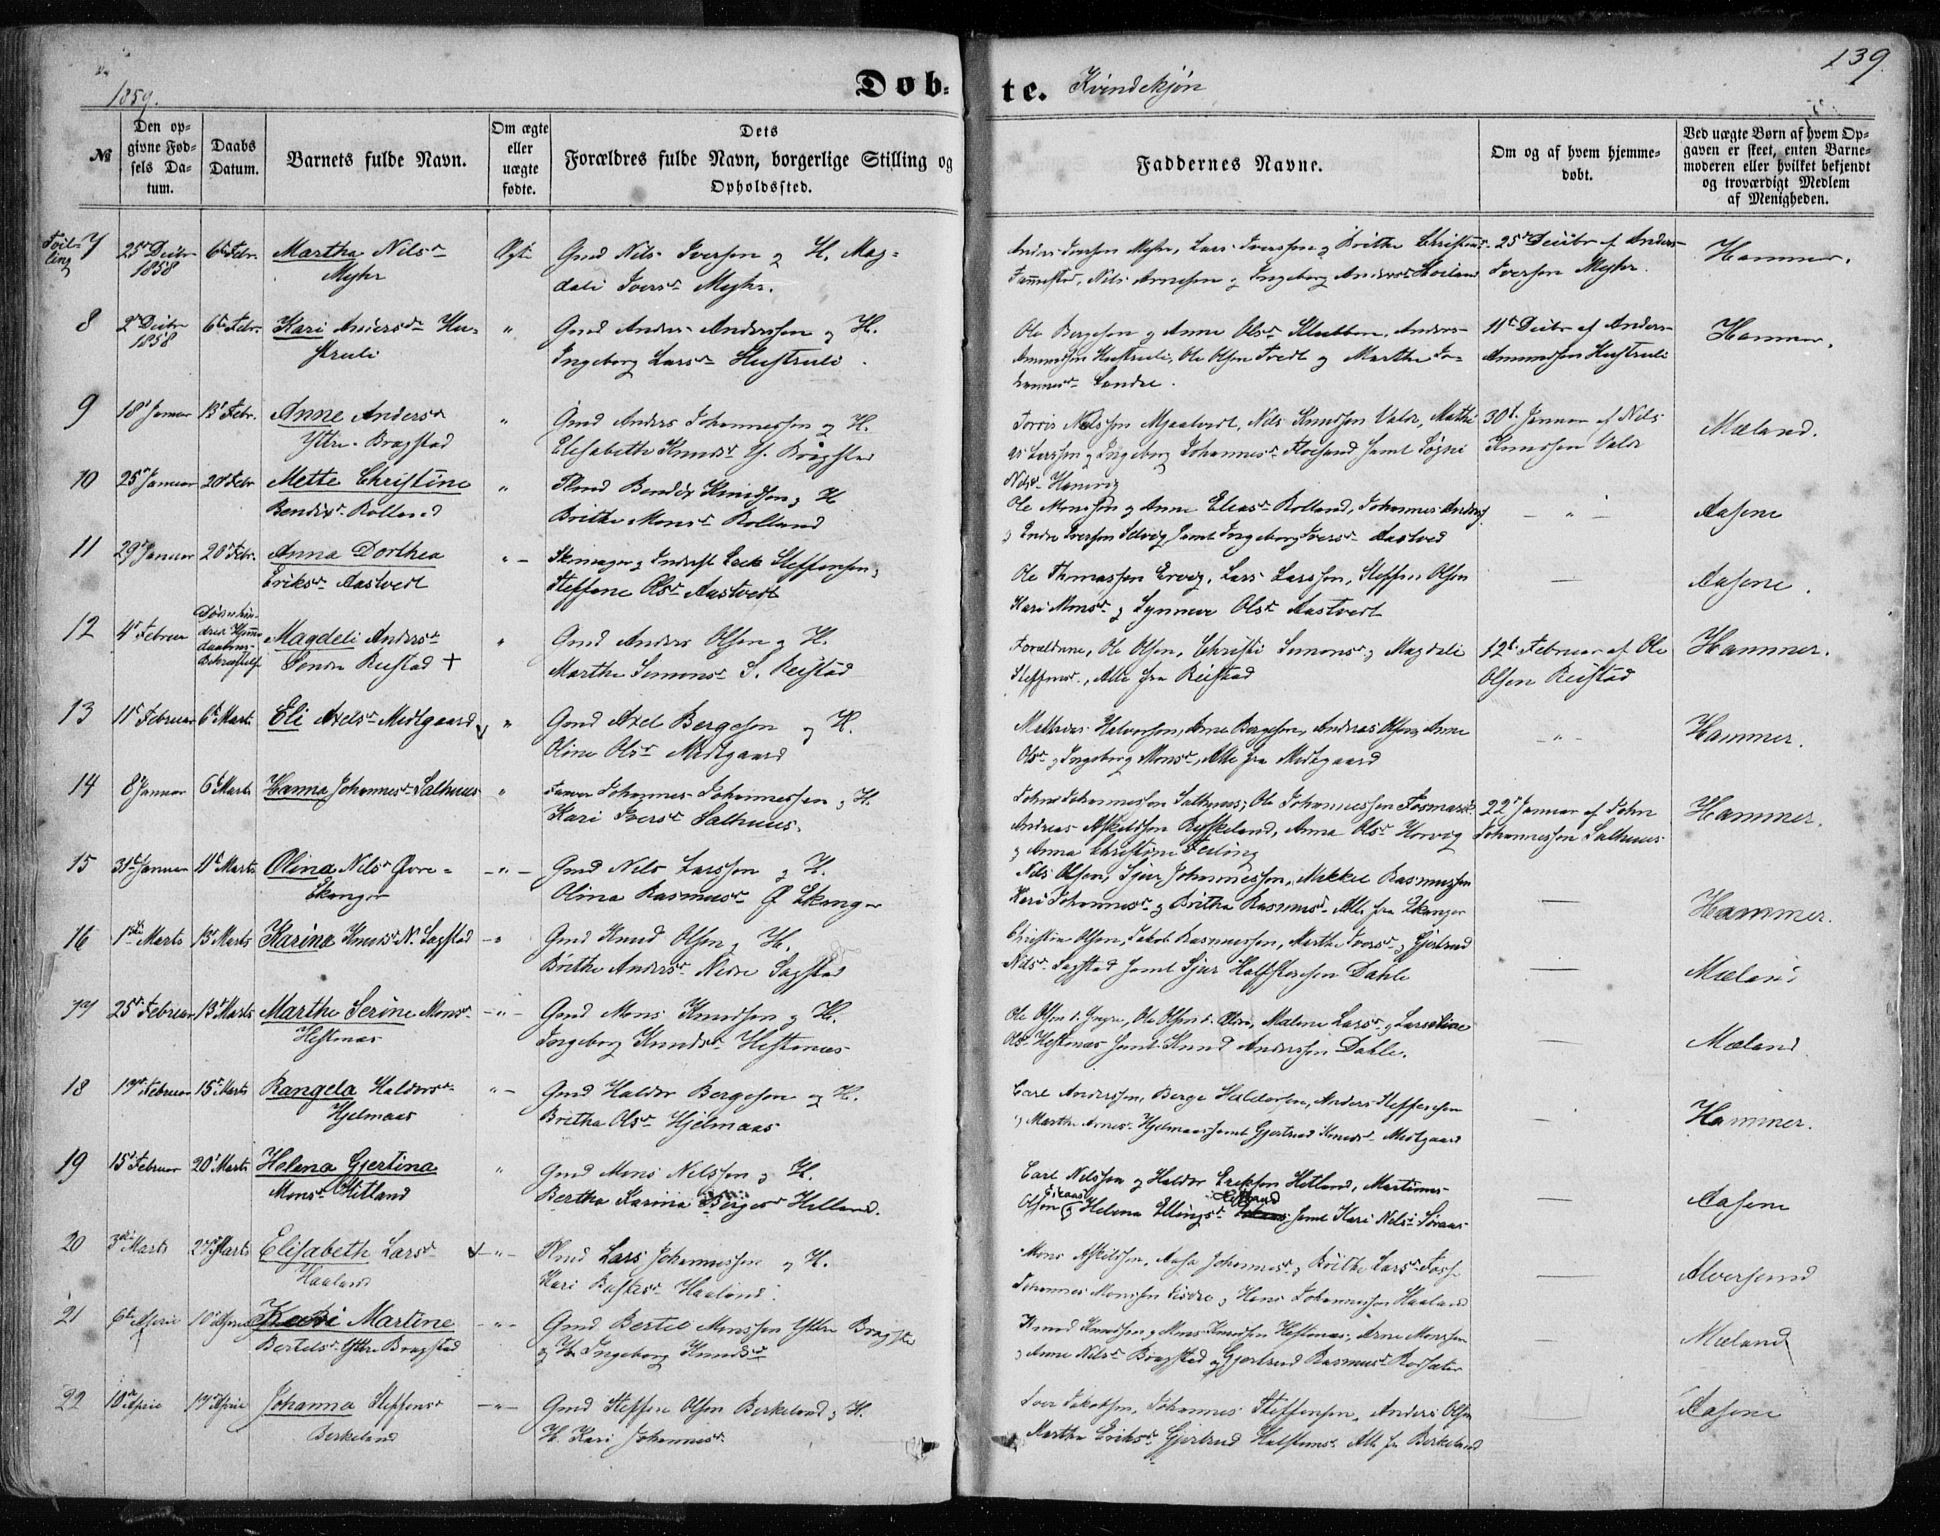 139.
1859.
Døb-
te. Kvindekjøn
№
Den op-
givne Fød-
sels Da-
tum.
Daabs
Datum.
Barnets fulde Navn.
Om ægte
eller
uægte
fødte.
Dets
Forældres fulde Navn, borgerlige Stilling og
Opholdssted.
Faddernes Navne.
Om og af hvem hjemme-
døbt.
Ved uægte Børn af hvem Op-
gaven er skeet, enten Barne-
moderen eller hvilket bekjendt
og troværdigt Medlem
af Menigheden.
Tvil-
ling
7 25r Decbr 6te Febr. Martha Nilsdr Ægte Gmd Nils Iversen og H. Mag-
1858 Myhr dali Iversdr Myhr.
Anders Iversen Myhr, Lars Iverssen og Brithe
Nils Arnesen og Ingeborg Andersdr
25r Decbr af Anders
Iversen Myhr.
Hammer.
8 2r Decbr 6te Febr. Kari Andersdr Hu- " Gmd Anders Anderssen og H.
1858 struli Ingeborg Larsdr Hustruli.
Ole Bergesen og Anne Olsdr Klubben, Anders
Amundsen Hustruli, Ole Olsen Tvedt og Marthe Jo-
hannesdr Sandre.
11te Decbr af Anders
Amundsen Hustruli
Hammer.
9 18r Januar 13r Febr. Anne Andersdr " Gmd Anders Johannessen og H.
Ytre Bragstad Elisabethe Knudsdr Y. Bragstad
Torris Nilssen Mjaatvedt, Nils Knudsen Valde, Mathi-
as Larssen og Ingeborg Johannesdr Flolsand samt Søgni
Nilsdr Hanevig
30t Januar af Nils
Knudsen Valde
Mæland.
10 25r Januar 20r Febr Mette Christine " Plmd Bendix Knudsen og H
Bendixdr Rolland Brithe Monsdr Rolland
Ole Monssen og Anne Eliasdr Rolland, Johannes Anders.
og Endre Iversen Selvig samt Ingeborg Iversdr Aastved
- " -
Aasene
11 29r Januar 20r Febr. Anna Dorthea " Skinager og Inderst Erik Steffensen og
Eriksdr Aastvedt Steffene Olsdr Aastvedt
Ole Thomassen Ervig, Lars Larssen, Steffen Olsen
Kari Monsdr og Synneve Olsdr Aastvedt
—
Aasene.
12 4r Februar Magdeli Andersdr " Gmd Anders Olsen og H.
Søndre Reistad + Marthe Simonsdr S. Reistad
Forældrene, Ole Olsen, Christi Simonsdr og Magdeli
Steffensdr, Alle fra Reistad
12t Februar af Ole
Olsen Reistad
Hammer.
13 11r Februar 6te Marts Eli Axelsdr Midtgaard " Gmd Axel Bergesen og H.
Oline Olsdr Midtgaard
Mathias Halvorsen, Arne Bergesen, Andreas Olsen, Anne
Olsdr og Ingeborg Monsdr, Alle fra Midtgaard
- " -
Hammer.
14 8r Januar 6te Marts Hanna Johannesdr Salhuus " Johannes Johannessen og H.
Kari Iversdr Salhuus.
John Johannessen Salhuus, Ole Johannessen Fosmark
Andreas Askildsen Ryskeland, Anna Olsdr Horvig
og Anna Christine Ferling
22r Januar af John
Johannessen Salhuus
Hammer.
15 31te Januar 11te Marts Olina Nilsdr Øvre - " - Gmd Nils Larssen og H.
Ekanger Olina Rasmusdr Ø Ekanger
Nils Olsen, Sjur Johannessen, Mikkel Rasmussen
Kari Johannesdr og Britha Rasmusdr Alle fra Ekanger
—
Hammer.
16 1ste Marts 13r Marts Karina Knudsdr N. Sagstad - " Gmd Knud Olsen og H.
Brithe Andersdr Nedre Sagstad
Christian Olsen, Jakob Rasmussen, Marthe Iversdr og Gjertrud
Nilsdr Sagstad samt Sjur Dahle
—
Mæland
17 25r Februar 13r Marts Marthe Serine Monsdr - " - Gmd Mons Knudsen og H.
Hestenæs Ingeborg Knudsdr Hestenæs
Ole Olsen d. Yngre, Ole Olsen d. Ældre, Malene Larsdr og
Olsdr Hestenæs samt Knud Anderssen Dahle.
—
Mæland
18 17r Februar 15r Marts Rangela Haldorsdr " - Gmd Haldor Bergesen og H.
Hjelmaas Britha Olsdr Hjelmaas
Carl Anderssen, Berge Haldorsen, Anders Steffensen
og Marthe Arnesdr Hjelmaas samt Gjertrud Knudsdr Midtgaard
—
Hammer.
19 15r Februar 20r Marts Helena Gjertina " Gmd Mons Nilssen og H.
Monsdr Hitland Bertha Karina Børgesdr Hitland.
Carl Nilssen og Haldor Eriksen Hitland, Martinus
Olsen og Helena Ellingsdr Hitland samt Kari Nilsdr Soraas
—
Aasene
20 3die Marts 27r Marts Elisabeth Larsdr - " - Plmd Lars Johannessen og H.
Haaland Kari Haaland.
Mons Askildsen, Aasa Johannesdr, Brithe Larsdr Fosse
Johannes Monssen og Hans Johannessen Haaland
—
Alversund
21 6te April 10r April Kari Martine - " - Gmd Bertel Monssen Ytre Bragstad
Bertelsdr Ytre Bragstad og H. Ingeborg Knudsdr
Knud Knudsen og Mons Knudsen Hestenæs, Arne Monssen
og Anne Nilsdr Bragstad og Gjertrud Rasmusdr
—
Mæland
22 10r April 17r April Johanna Steffensdr - " - Gmd Steffen Olsen Berkeland og H.
Berkeland H. Kari Johannesdr
Iver Jakobsen, Johannes Steffensen, Anders Olsen
Martha Eriksdr, Gjertrud Halstensdr Alle fra Berkeland
—
Aasene